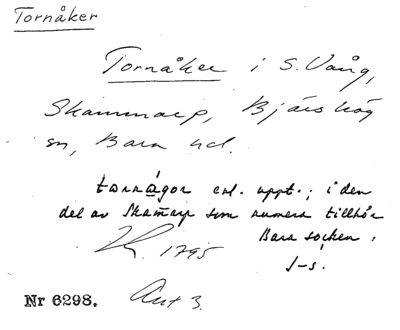 Tornåker
Tornåker i S. Vång,
Skammarp, Bjärshög
sn, Bara hd.
tornågor enl. uppt.; i den
del av Skam̄arp som numera tillhör
Bara socken.
1795 J-s.
Nr 6298. Akt 3.